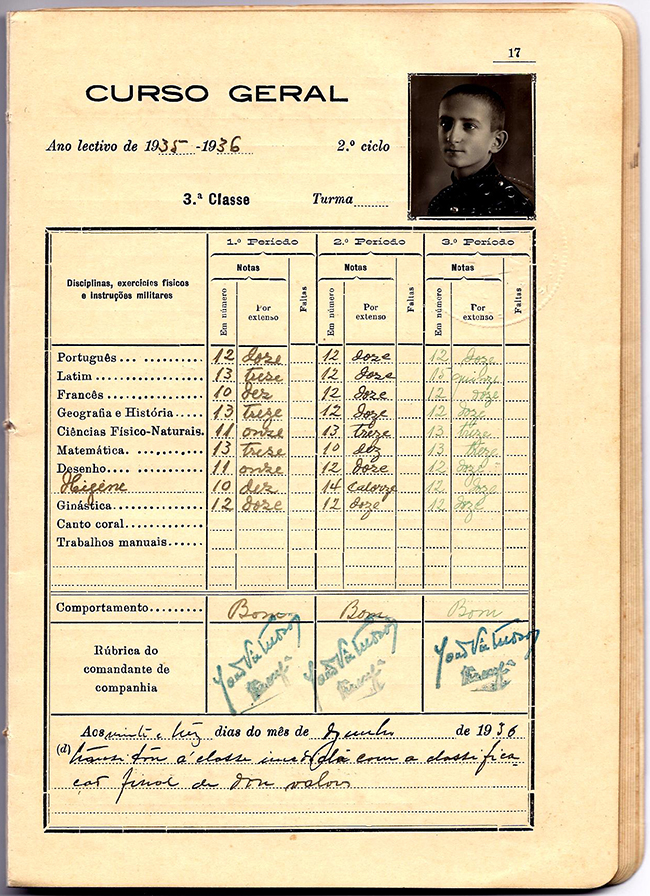 17
CURSO GERAL
Ano lectivo de 1935-1936 2.º ciclo
3.ª Classe Turma
Disciplinas, exercícios físicos e instruções militares
1.º Período 2.º Período 3.º Período
Notas Notas Notas
Em número Por extenso Faltas Em número Por extenso Faltas Em número Por extenso Faltas
Português 12 doze 12 doze 12 doze
Latim 13 treze 12 doze 15 quinze
Francês 10 dez 12 doze 12 doze
Geografia e História 13 treze 12 doze 12 doze
Ciências Físico-Naturais. 11 onze 13 treze 13 treze
Matemática 13 treze 10 dez 13 treze
Desenho 11 onze 12 doze 12 doze
Higiene 10 dez 14 catorze 12 doze
Ginástica 12 doze 12 doze 12 doze
Canto coral
Trabalhos manuais
Comportamento Bom Bom Bom
Rúbrica do comandante de companhia
João João João
Aos vinte e três dias do mês de Junho de 1936
(d) transitou á classe imediata com a classifica-
ção final de doze valores